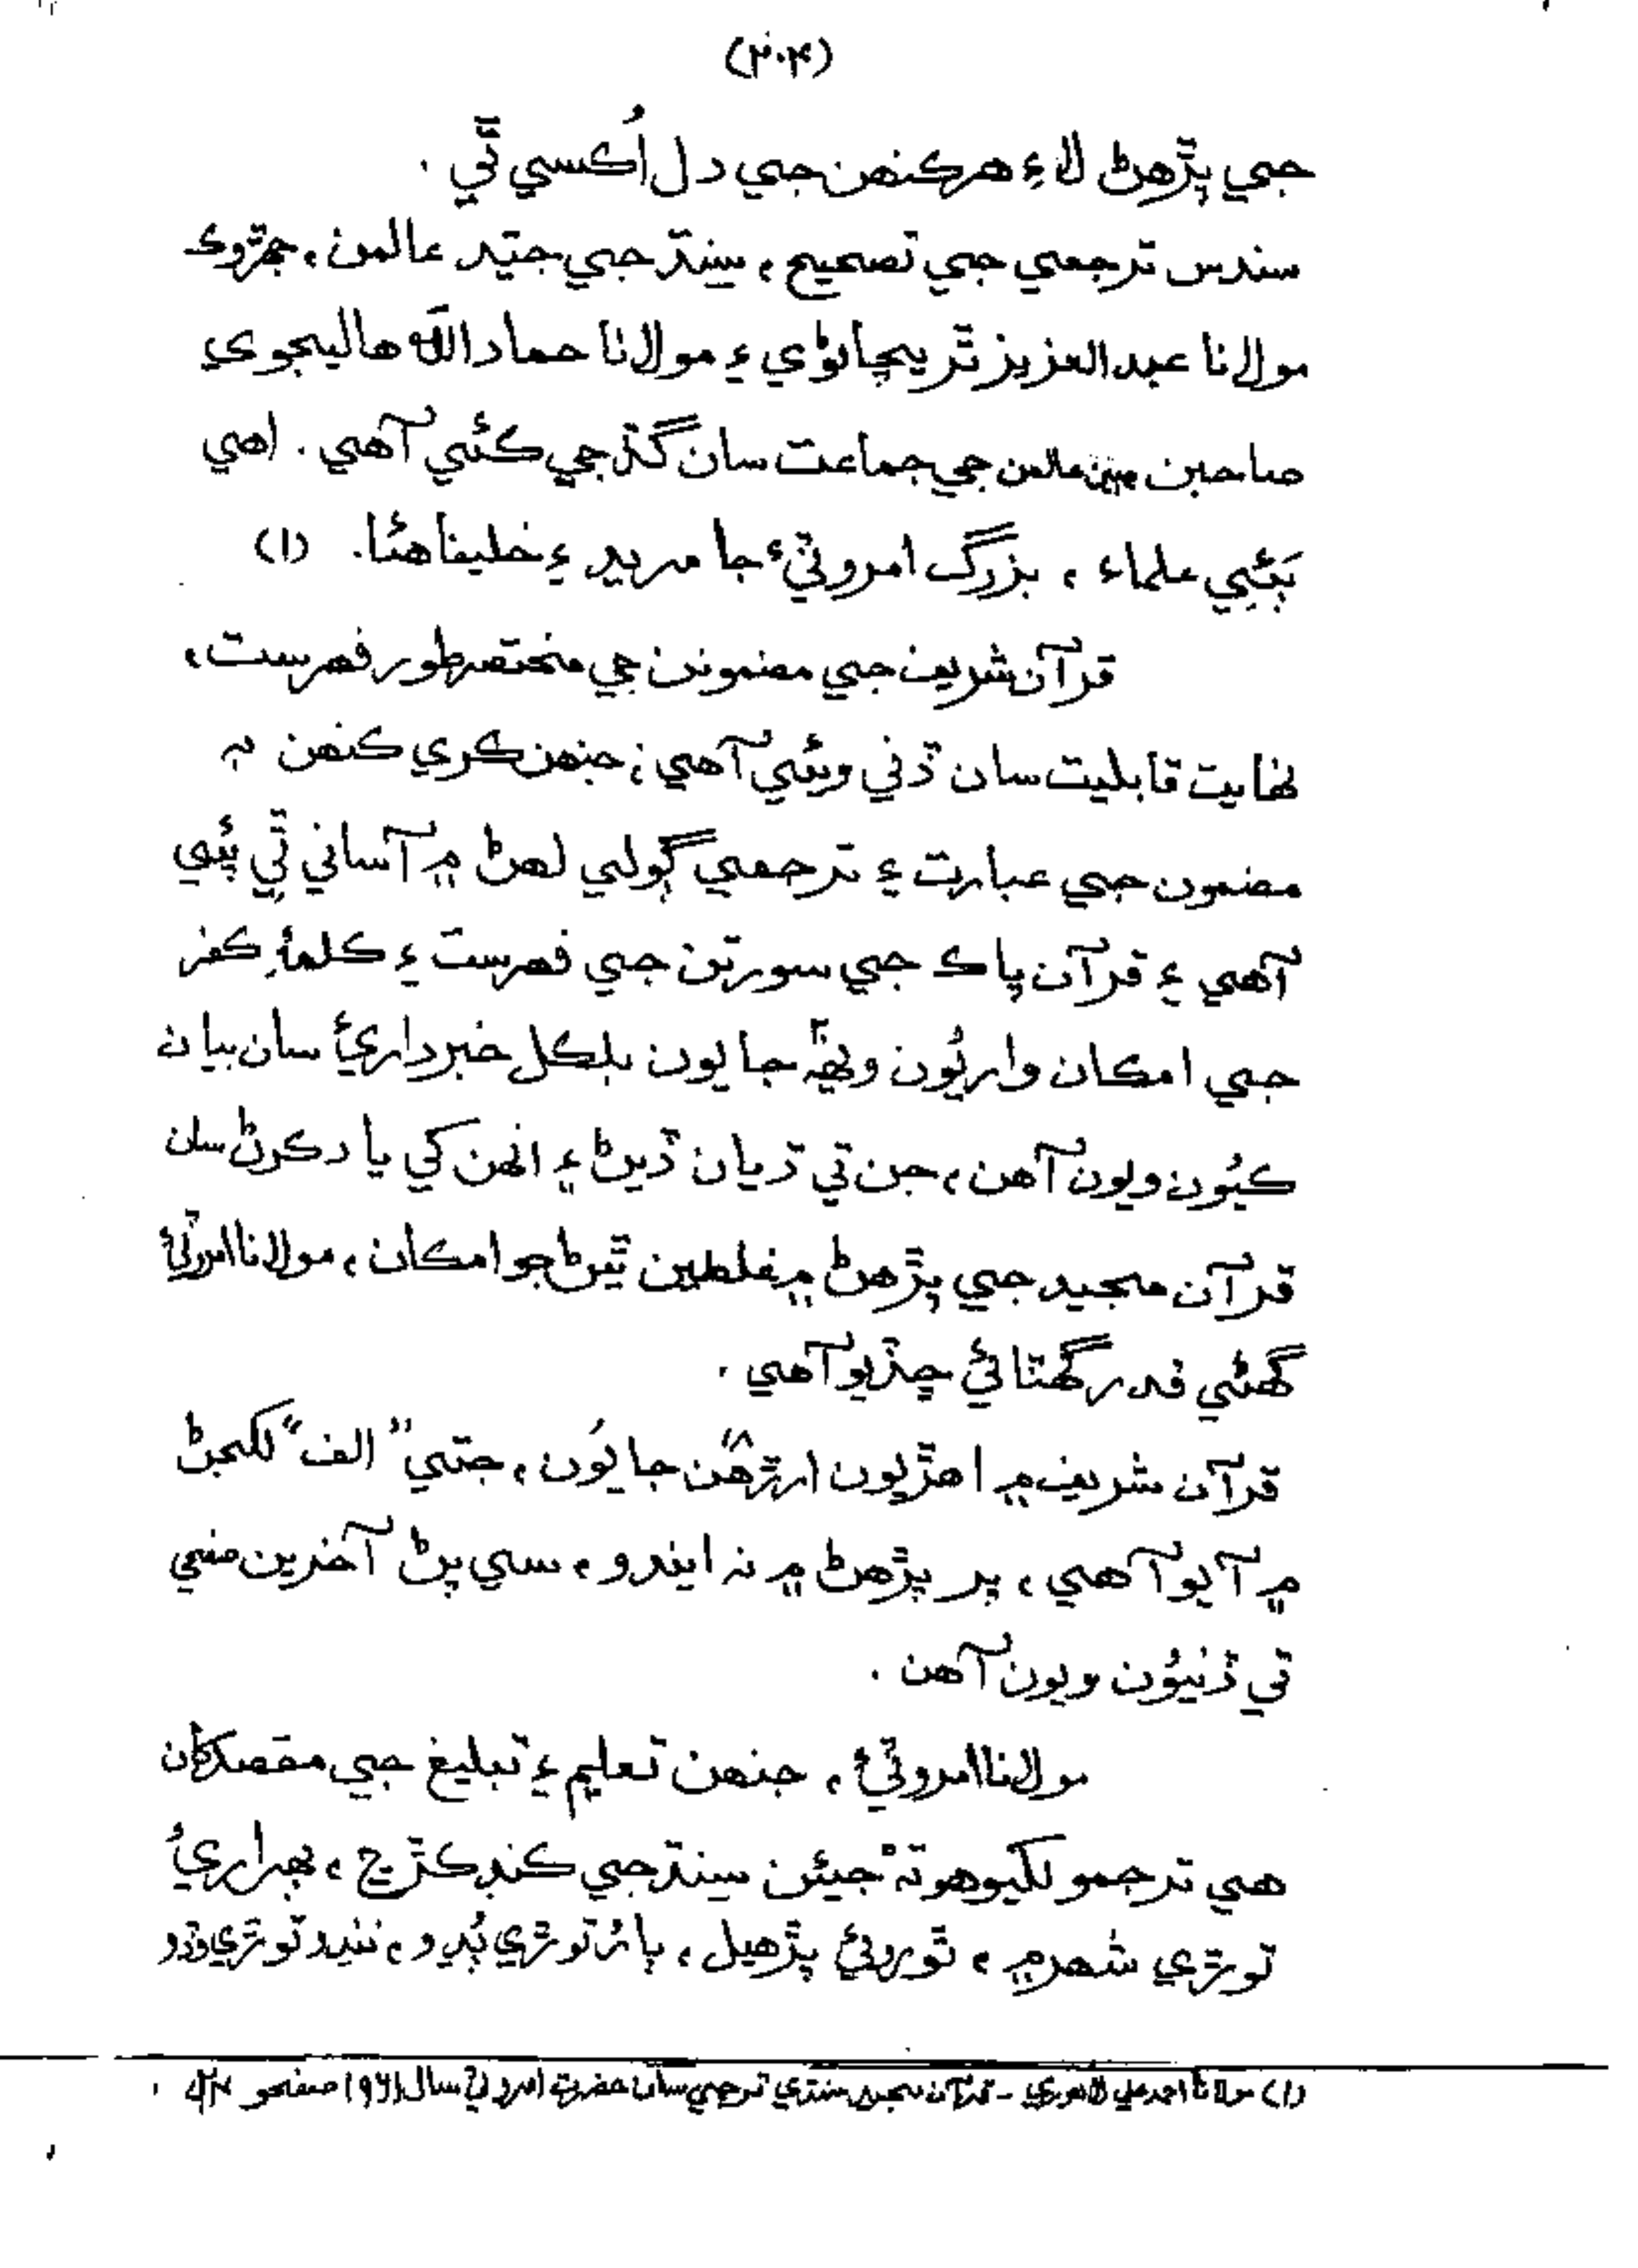 (٢٠۴)
جي پڙهڻ لاءِ هرڪنهن جي دل اُڪسي ٿي .
سندس ترجمي جي تصحيح ، سِنڌ جي جيّد عالمن ، جهڙوڪ
مولانا عبدالعزيز ٿريچاڻوي ۽ مولانا حماد الله هاليجوي
صاحبن ٻين عالمن جي جماعت سان گڏجي ڪئي آهي . اهي
ٻَئِي علماء ، بزرگ امروٽيءَ جا مريد ۽ خليفا هئا . (١)
قرآن شريف جي مضمونن جي مختصر طور فهرست ،
نهايت قابليت سان ڏني ويئي آهي ؛ جنهن ڪري ڪنهن به
مضمون جي عبارت ۽ ترجمي ڳولي لهڻ ۾ آساني ٿِي پئي
آهي ۽ قرآن پاڪ جي سورتن جي فهرست ۽ ڪلمۂِ ڪفر
جي امڪان واريُون ويهَه جايون بلڪل خبرداريءَ سان بيان
ڪيُون ويون آهن ، جن تي ڌيان ڏيڻ ۽ انهن کي ياد ڪرڻ سان
قرآن مجيد جي پڙهڻ ۾ غلطين ٿيڻ جو امڪان ، مولانا امروٽيءَ
گهڻي قدر گهٽائي ڇڏيو آهي .
قرآن شريف ۾ اهڙيون ارڙهَن ١٨ جايُون ، جتي ”الف“ لکجڻ
۾ آيو آهي ، پر پڙهڻ ۾ نه ايندو ، سي پڻ آخرين صفحي
تي ڏنيُون ويون آهن .
مولانا امروٽيءَ ، جنهن تعليم ۽ تبليغ جي مقصد کان
هي ترجمو لکيو هو ته جيئن سِنڌ جي ڪنڊ ڪڙڇ ، ٻهراڙيءَ
توڙي شهر ۾ ، ٿورو ئي پڙهيل ، ٻارُ توڙي ٻُڍو ، ننڍو توڙي وڏو
(١) مولانا احمد علي لاهوري - قرآن مجيد سنڌي ترجمي سان حضرت امروٽي سال ١٩٦١ صفحو